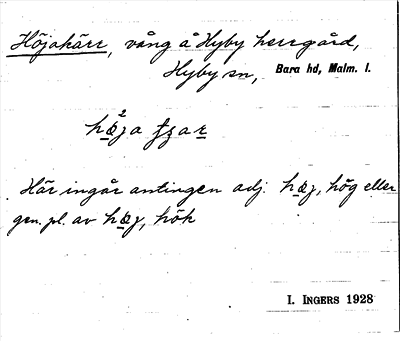 Höjakärr, vång å Hyby herrgård,
Hyby sn, Bara hd, Malm. l.
hœ²ja
Här ingår antingen adj. hœj, hög eller
gen. pl. av hœj, hök
I. INGERS 1928